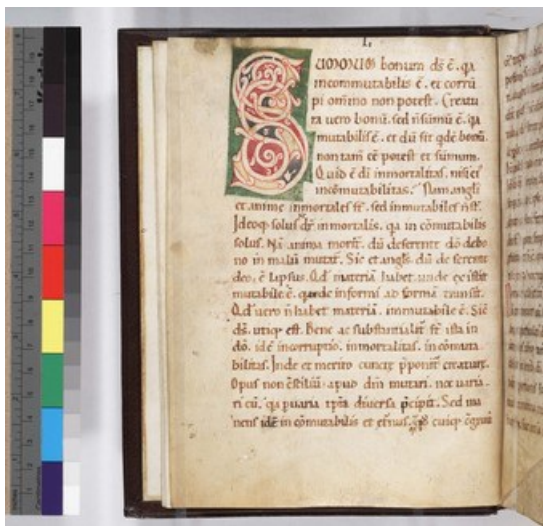 I.
SUMMUM bonum ds ē. qa
incommutabilis ē. et corrū
pi omīno non potest. Creatu
ra uero bonū. sed n̄ sūmū ē. qa
mutabilis ē. et dū sit qdē bonū.
non tam̄ eē potest et sūmum.
Quid ē dī inmortalitas. nisi eī
incōmutabilitas. Nam. angli
et anime inmortales st̄. sed inmutabiles n̄ st̄.
Ideoq; solus ds̄ inmortalis. qa incōmutabilis
solus. Nā anima morit̄. dū deserente dō de bo
no in malū mutat̄. Sic et angls̄. dū deserente
deo. ē lapsus. Qd̄ materiā habet unde existit
mutabile ē. quia de informi ad formā transit.
Qd̄ uero n̄ habet materiā. immutabile ē. Sic
ds̄. utiq; est. Bene ac substantialit̄ st̄ ista in
dō. id ē incorruptio. inmortalitas. incōmuta
bilitas. Inde et merito cuncte p̄ponit̄ creature.
Opus non cōsiliū. apud dm̄ mutari. nec uaria
ri eū. qa p uaria tpr̄a diuersa p̄cipit. Sed ma
nens idē incōmutabilis et et̄nus. qd̄ cuiq; cōgruū